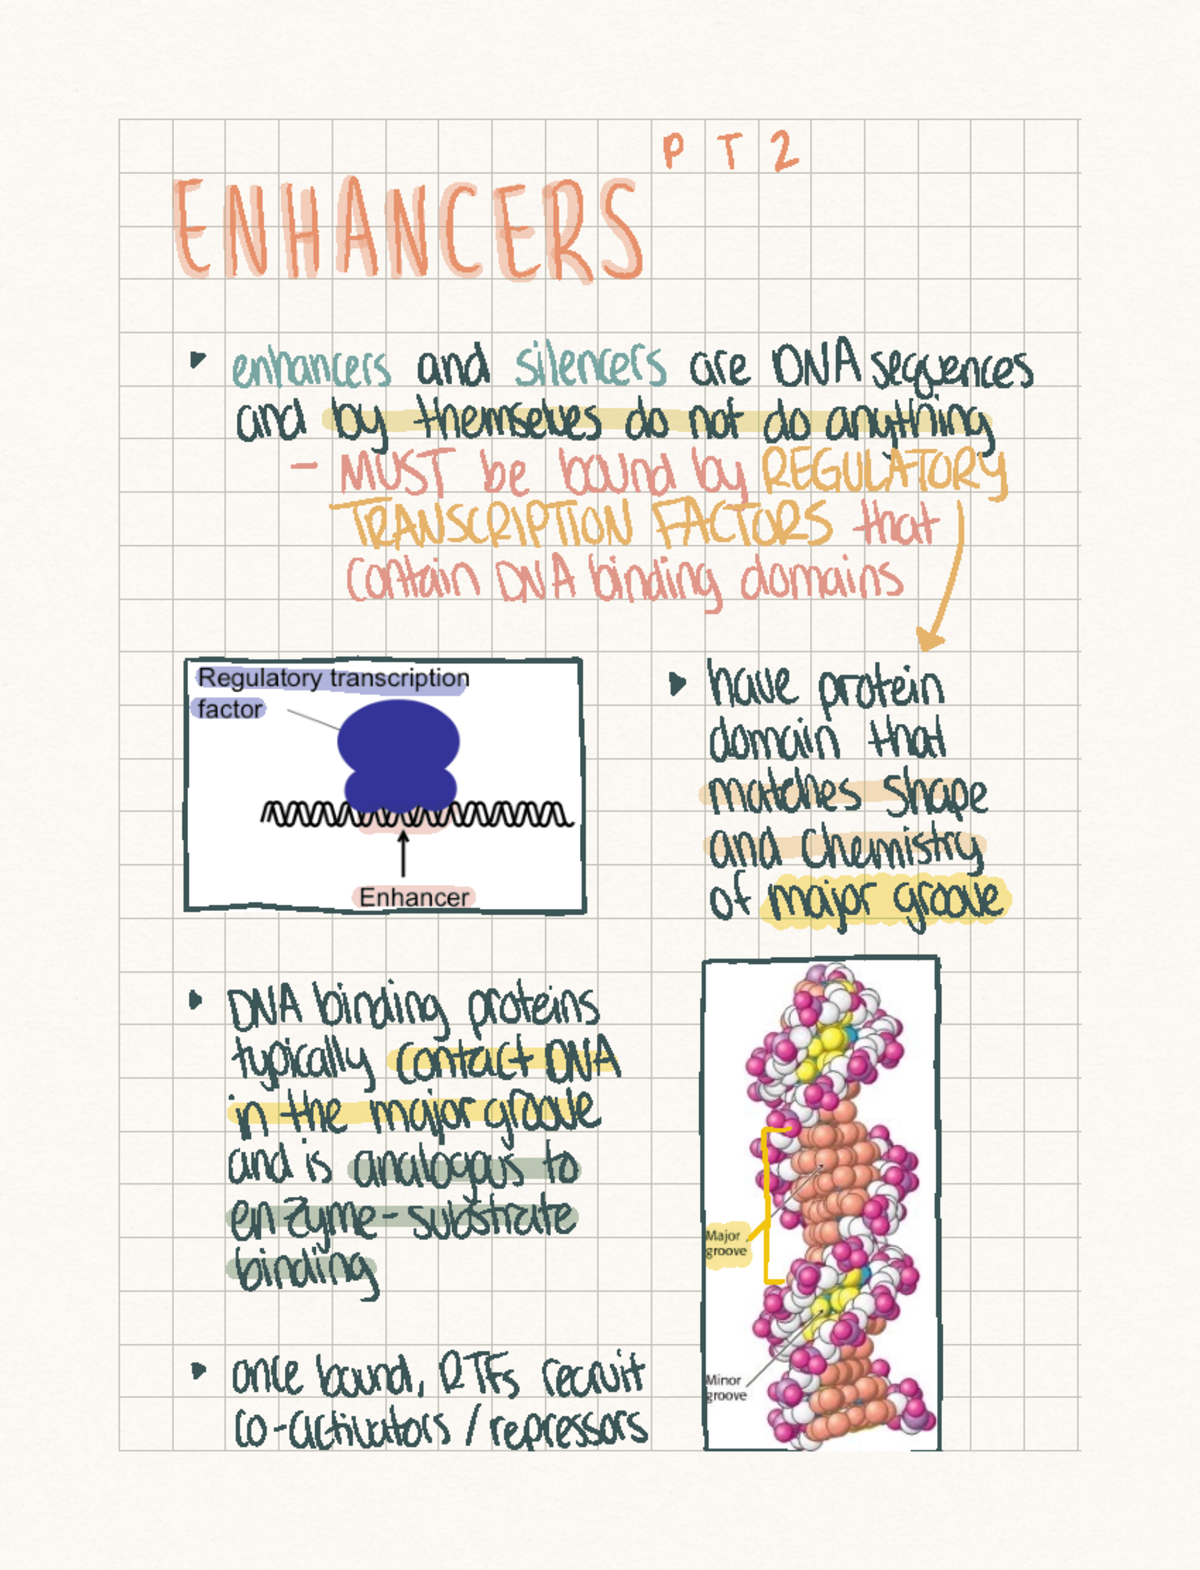 PT2
ENHANCERS
enhancers and silencers are DNA sequences
and by themselves do not do anything
- MUST be bound by REGULATORY
TRANSCRIPTION FACTORS that
contain DNA binding domains
Regulatory transcription
factor
Enhancer
have protein
domain that
matches shape
and chemistry
of major groove
DNA binding proteins
typically contact DNA
in the major groove
and is analogous to
enzyme-substrate
binding
Major
groove
Minor
groove
once bound, RTFs recruit
co-activators / repressors